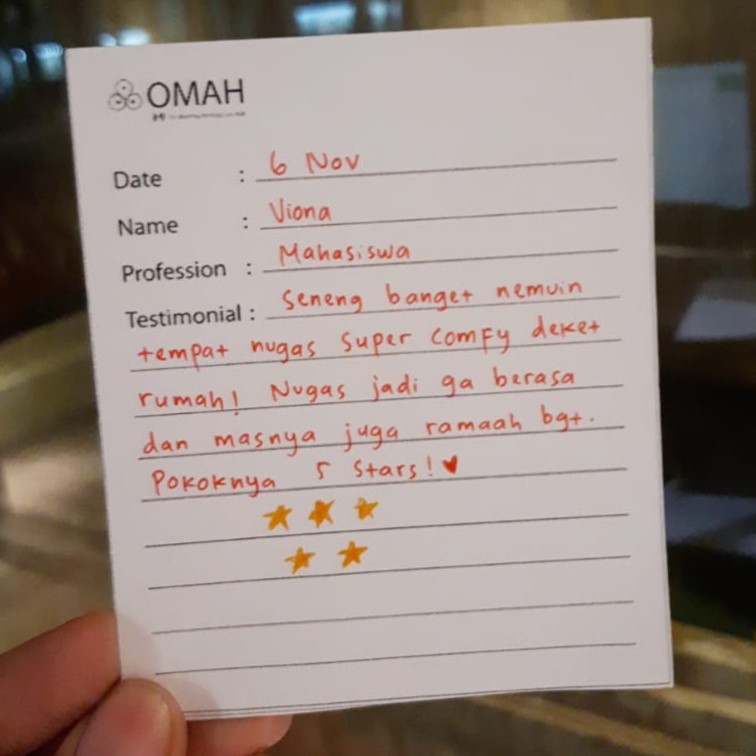 OMAH
Date : 6 Nov
Name : Viona
Profession : Mahasiswa
Testimonial : Seneng banget nemuin
tempat nugas super comfy deket
rumah! Nugas jadi ga berasa
dan masnya juga ramaah bgt.
Pokoknya 5 stars! ♥